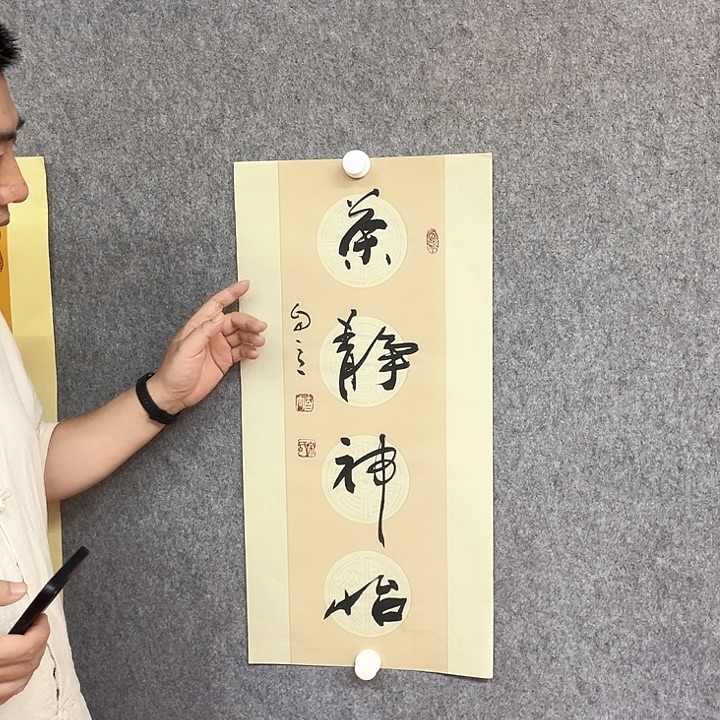 茶静神怡